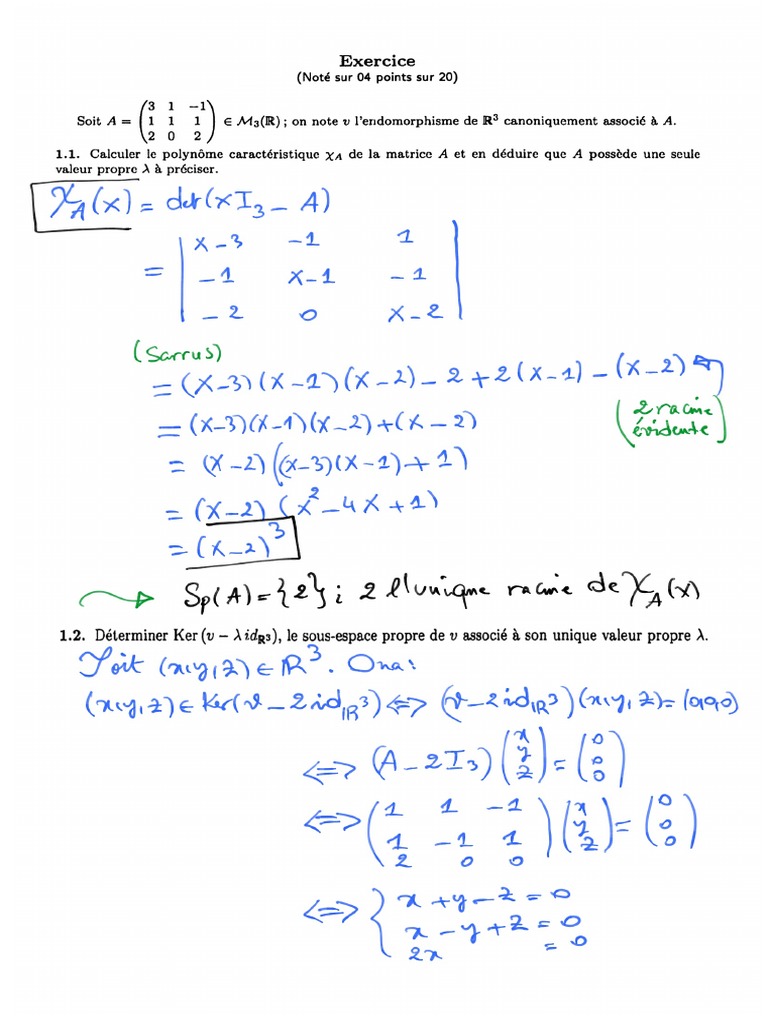 Exercice
(Noté sur 04 points sur 20)
Soit A = (3 1 −1; 1 1 1; 2 0 2) ∈ M₃(ℝ) ; on note v l'endomorphisme de ℝ³ canoniquement associé à A.
1.1. Calculer le polynôme caractéristique χ_A de la matrice A et en déduire que A possède une seule
valeur propre λ à préciser.
χ_A(x) = det(xI₃ − A)
= | x−3 −1 1
−1 x−1 −1
−2 0 x−2 |
(Sarrus)
= (x−3)(x−1)(x−2) − 2 + 2(x−1) − (x−2)
= (x−3)(x−1)(x−2) + (x−2)
(2 racine
évidente)
= (x−2)((x−3)(x−1)+1)
= (x−2)(x²−4x+1)
= (x−2)³
Sp(A) = {2} ; 2 l'unique racine de χ_A(x)
1.2. Déterminer Ker (v − λ id_ℝ³), le sous-espace propre de v associé à son unique valeur propre λ.
Soit (x,y,z) ∈ ℝ³. On a :
(x,y,z) ∈ Ker(v − 2id_ℝ³) ⟺ (v − 2id_ℝ³)(x,y,z) = (0,0,0)
⟺ (A − 2I₃)(x y z) = (0 0 0)
⟺ (1 1 −1; 1 −1 1; 2 0 0)(x y z) = (0 0 0)
⟺ { x + y − z = 0
x − y + z = 0
2x = 0